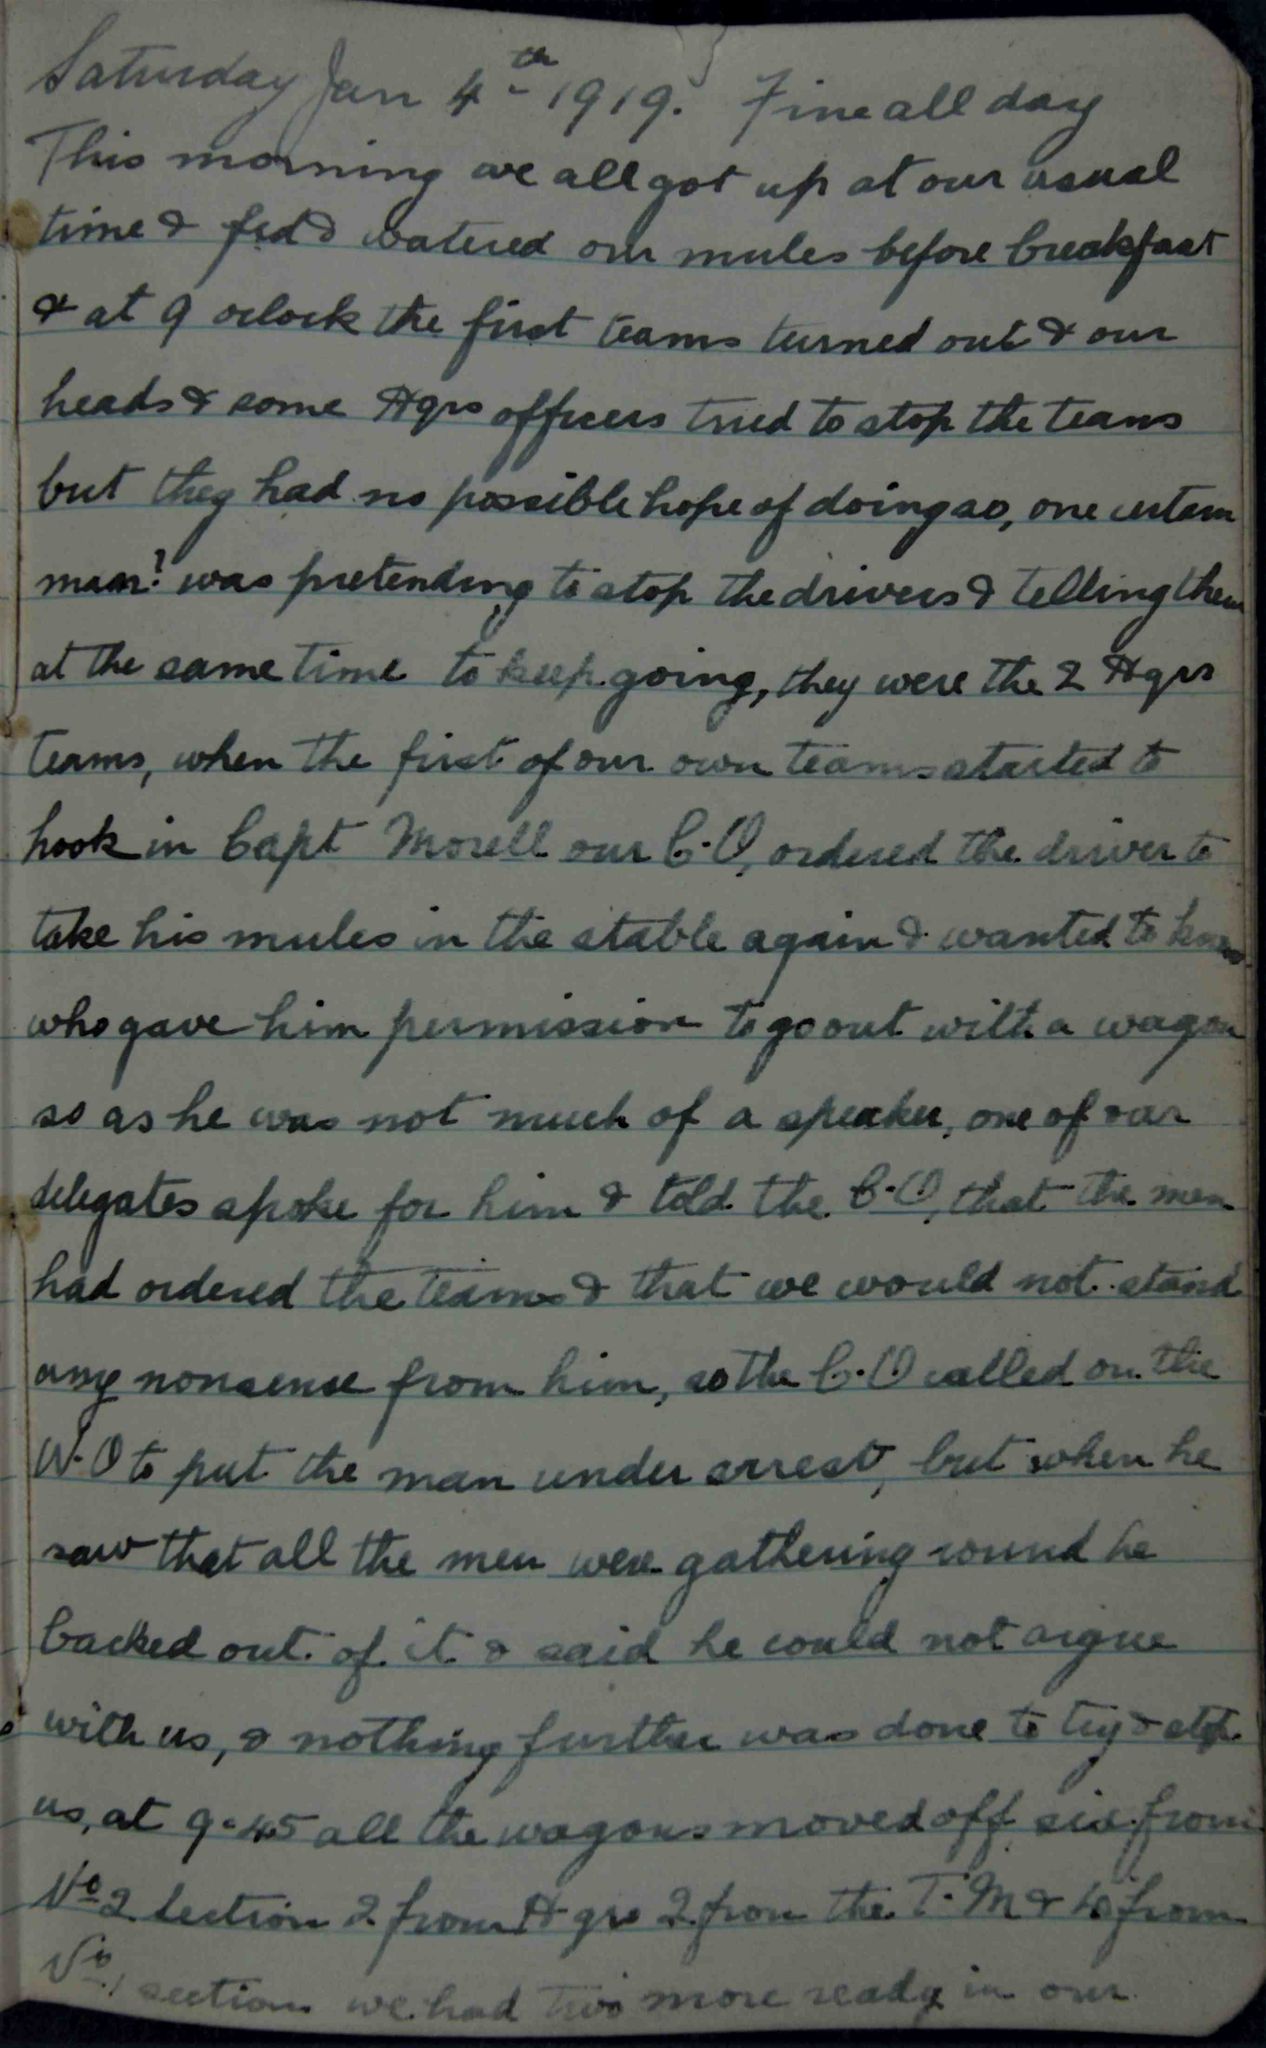 Saturday Jan 4th 1919. Fine all day
This morning we all got up at our usual
time & fed & watered our mules before breakfast
& at 9 oclock the first teams turned out & our
heads & some Hqrs officers tried to stop the teams
but they had no possible hope of doing so, one certain
man? was pretending to stop the drivers & telling them
at the same time to keep going, they were the 2 Hqrs
teams, when the first of our own teams started to
hook in Capt Morell our C.O, ordered the driver to
take his mules in the stable again & wanted to know
who gave him permission to go out with a wagon
so as he was not much of a speaker, one of our
delegates spoke for him & told the C.O, that the men
had ordered the teams & that we would not stand
any nonsense from him, so the C.O called on the
W.O to put the man under arrest, but when he
saw that all the men were gathering round he
backed out of it & said he could not argue
with us, & nothing further was done to try & stop
us, at 9.45 all the wagons moved off six from
No 2 Section 2 from Hqrs 2 from the T.M & from
No 1 section we had two more ready in our